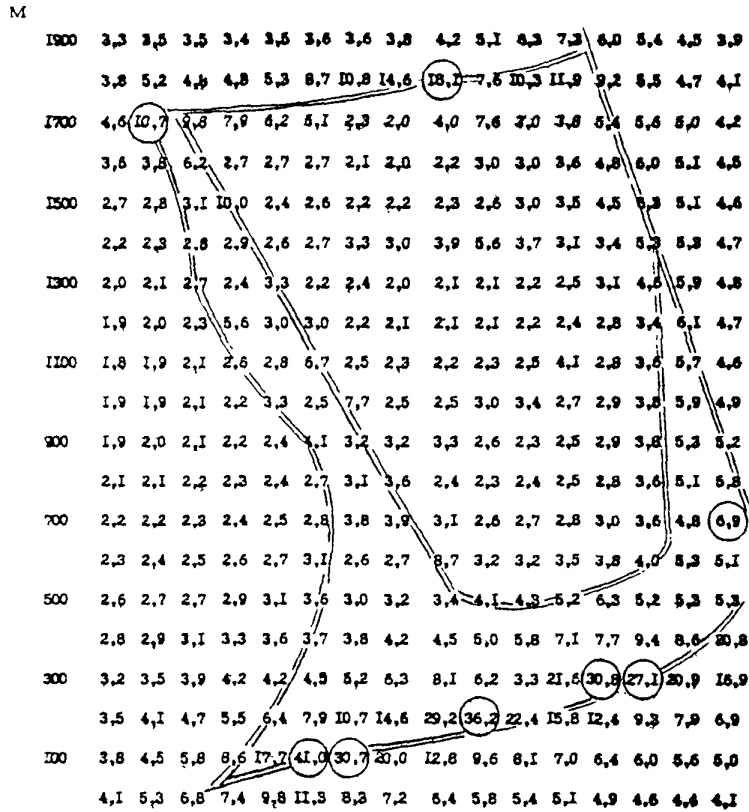 M
1900 3,3 3,5 3,5 3,4 3,5 3,6 3,6 3,8 4,2 5,1 8,3 7,3 6,0 5,4 4,5 3,9
3,8 5,2 4,8 4,8 5,3 8,7 10,8 14,6 18,1 7,6 10,3 11,9 9,2 5,5 4,7 4,1
1700 4,6 10,7 9,8 7,9 6,2 5,1 2,3 2,0 4,0 7,6 3,8 5,4 5,6 5,0 4,2
3,6 3,8 6,2 2,7 2,7 2,7 2,1 2,0 2,2 3,0 3,0 3,6 4,8 6,0 5,1 4,5
1500 2,7 2,8 3,1 10,0 2,4 2,6 2,2 2,2 2,3 2,6 3,0 3,5 4,5 5,1 4,6
2,2 2,3 2,8 2,9 2,6 2,7 3,3 3,0 3,9 5,6 3,7 3,1 3,4 5,3 5,8 4,7
1300 2,0 2,1 2,7 2,4 3,3 2,2 2,4 2,0 2,1 2,1 2,2 2,5 3,1 4,6 5,9 4,8
1,9 2,0 2,3 5,6 3,0 3,0 2,2 2,1 2,1 2,1 2,2 2,4 2,8 3,4 6,1 4,7
1100 1,8 1,9 2,1 2,6 2,8 6,7 2,5 2,3 2,2 2,3 2,5 4,1 2,8 3,6 5,7 4,6
1,9 1,9 2,1 2,2 3,3 2,5 7,7 2,5 2,5 3,0 3,4 2,7 2,9 3,8 5,9 4,9
900 1,9 2,0 2,1 2,2 2,4 4,1 3,2 3,2 3,3 2,6 2,3 2,5 2,9 3,8 5,3 5,2
2,1 2,1 2,2 2,3 2,4 2,7 3,1 3,6 2,4 2,3 2,4 2,5 2,8 3,6 5,1 5,8
700 2,2 2,2 2,3 2,4 2,5 2,8 3,8 3,9 3,1 2,6 2,7 2,8 3,0 3,6 4,8 6,9
2,3 2,4 2,5 2,6 2,7 3,1 2,6 2,7 8,7 3,2 3,2 3,5 3,8 4,0 5,3 5,1
500 2,6 2,7 2,7 2,9 3,1 3,6 3,0 3,2 3,4 4,1 4,3 5,2 6,3 5,2 5,3 5,3
2,8 2,9 3,1 3,3 3,6 3,7 3,8 4,2 4,5 5,0 5,8 7,1 7,7 9,4 8,6 20,8
300 3,2 3,5 3,9 4,2 4,2 4,5 5,2 6,3 8,1 6,2 3,3 21,6 30,8 27,1 20,9 16,9
3,5 4,1 4,7 5,5 6,4 7,9 10,7 14,6 29,2 36,2 22,4 15,8 12,4 9,3 7,9 6,9
100 3,8 4,5 5,8 8,6 17,7 41,0 30,7 20,0 12,8 9,6 8,1 7,0 6,4 6,0 5,6 5,0
4,1 5,3 6,8 7,4 9,8 11,3 8,3 7,2 6,4 5,8 5,4 5,1 4,9 4,6 4,4 4,1